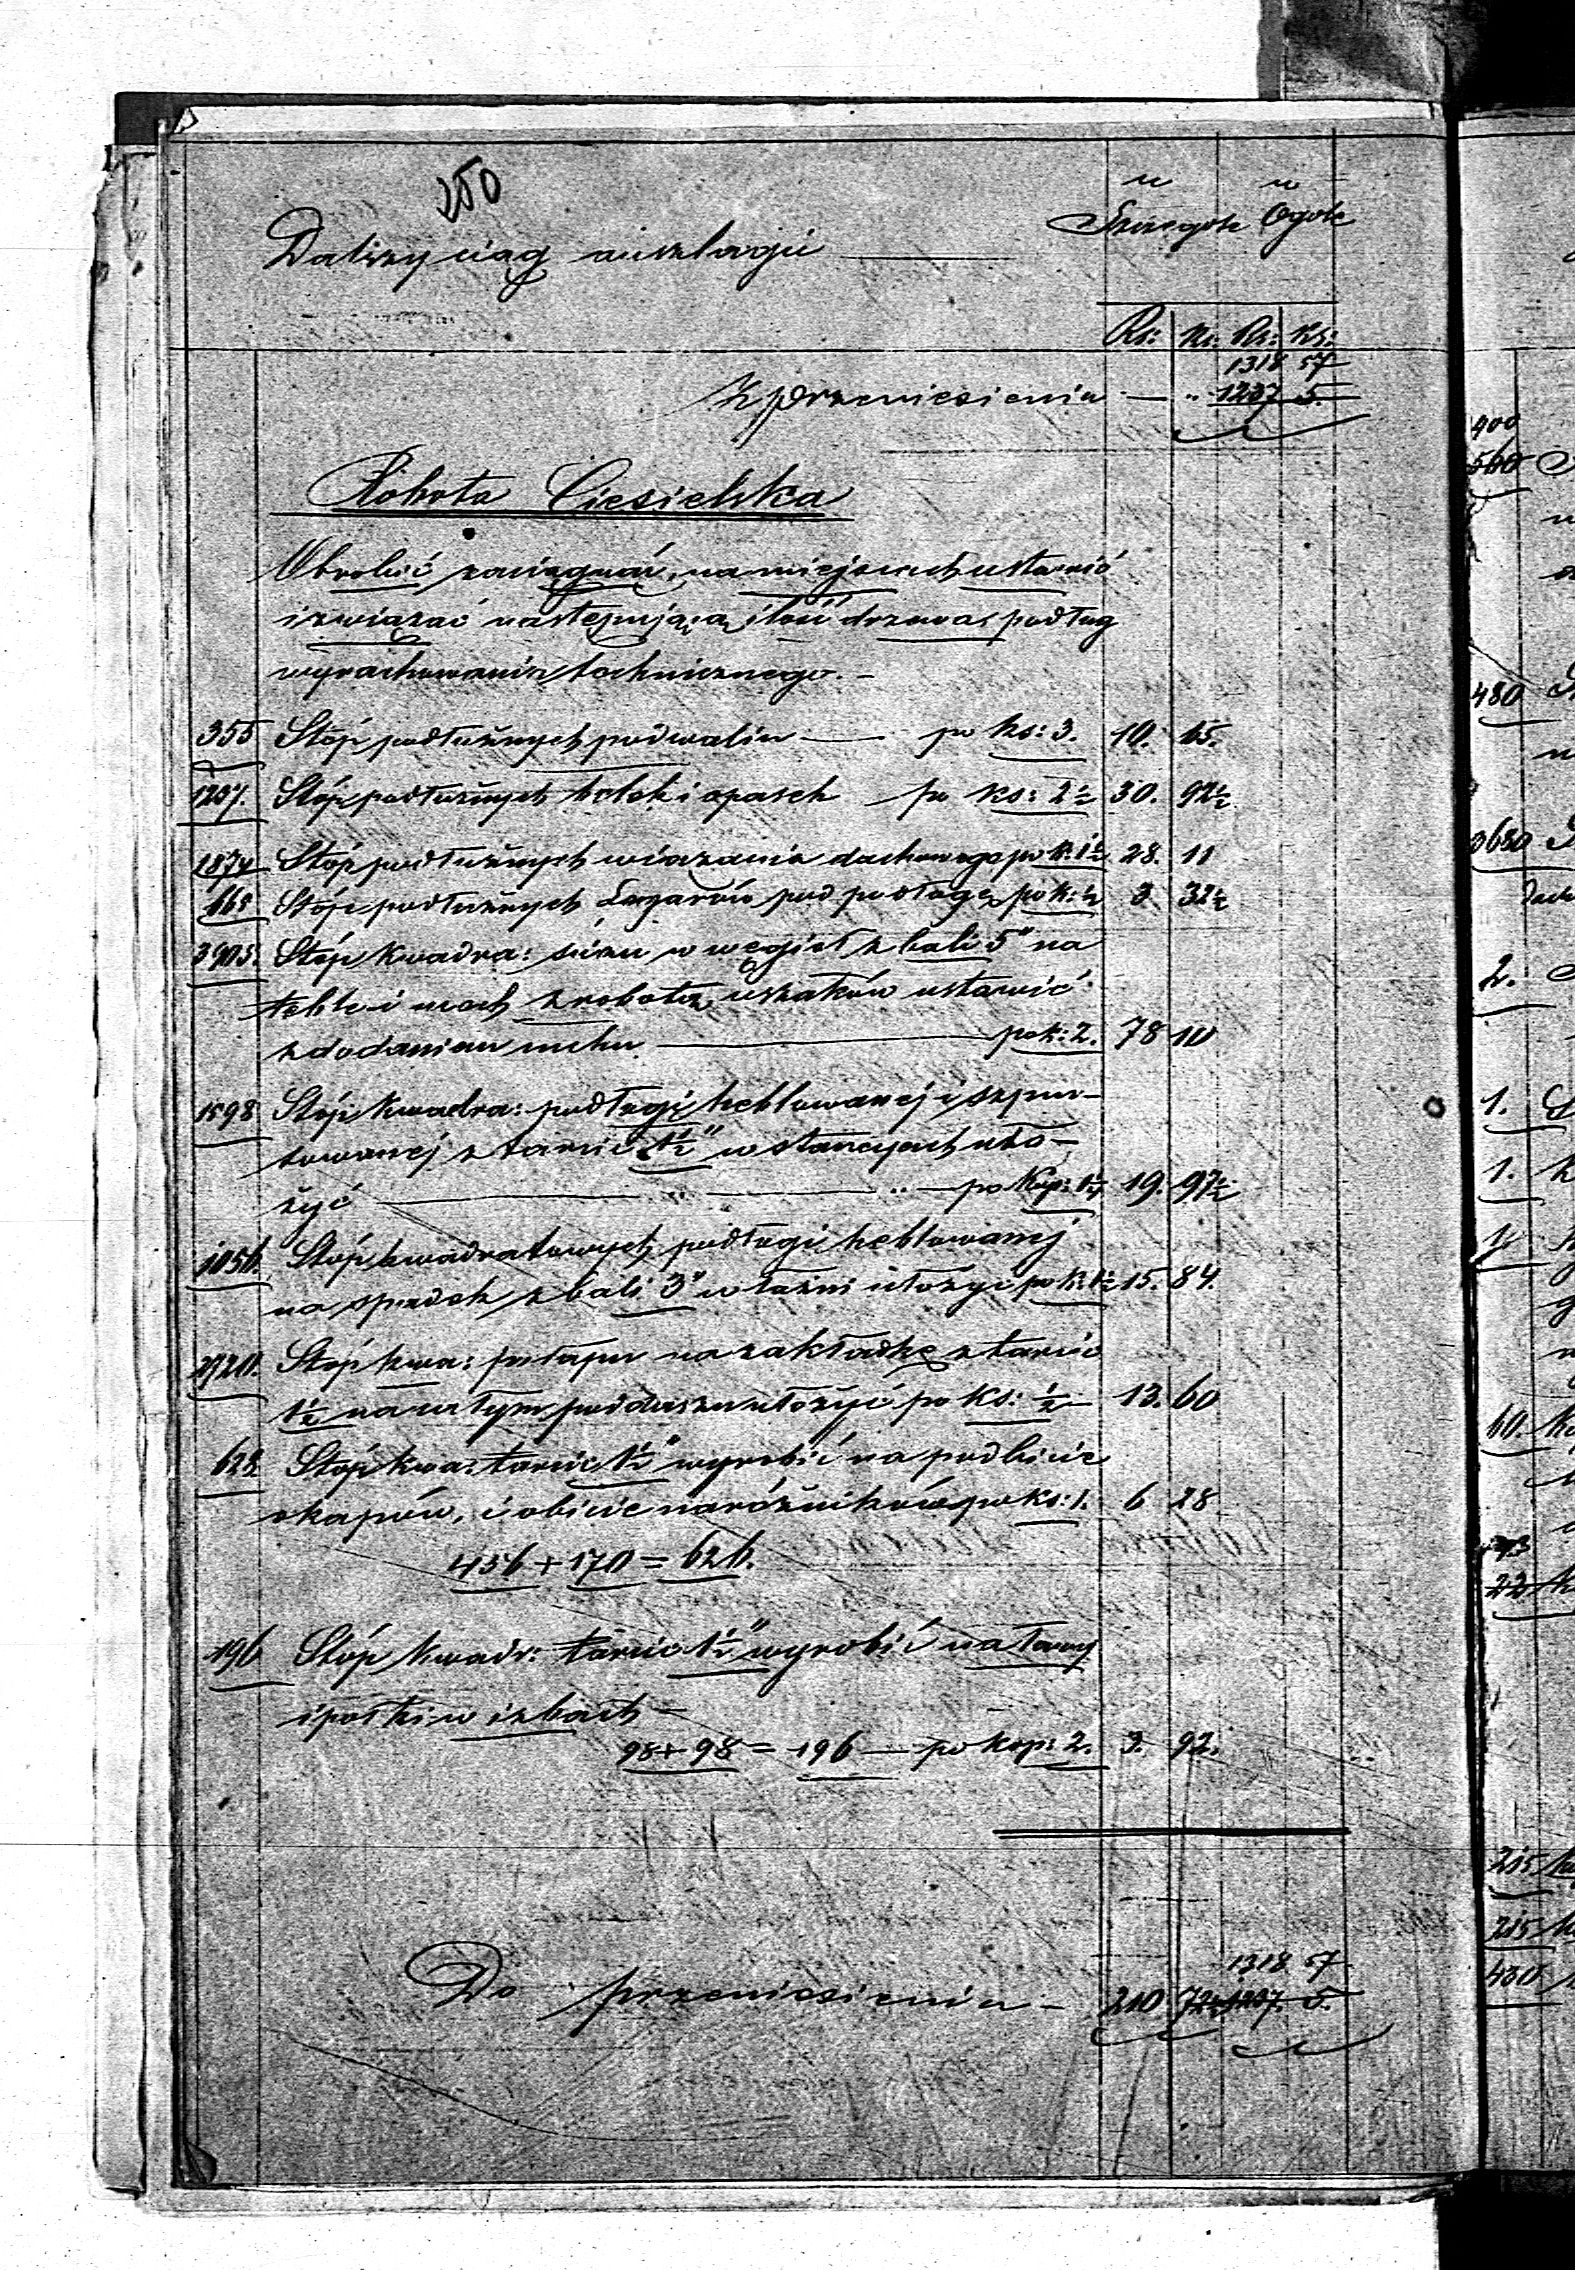 250
w w
Dalszy ciąg anszlagu Szczegole Ogole
Rs: Ks: Rs: Ks:
1318 57
Z przeniesienia — „ 1237 5.
Robota Ciesielska
Obrobić zaciągnąć, na miejscach ustawić
i związać następującą ilość drzewa podług
wyrachowania technicznego. –
355 Stóp podłużnych podwalin — po ks: 3. 10. 65.
1237. Stóp podłużnych belek i opasek po ks: 2½ 30. 92½
1874 Stóp podłużnych wiązania dachowego po k: 1½ 28. 11
665 Stóp podłużnych Legarów pod podłogę po k: ½ 3 32½
3905. Stóp kwadra: ścian w węgieł z bali 5" na
teble i mech z robotą uszaków ustawić
z dodaniem mchu — po k: 2. 78 10
1598 Stóp kwadra: podłogi heblowanej i szpun-
towanej z tarcic 1½" w stancyach uło-
żyć — „ — „ — po kop: 1¼ 19. 97½
1056. Stóp kwadratowych podłogi heblowanej
na spadek z bali 3" w łaźni ułożyć po k: 1½ 15. 84.
2720. Stóp kwa: pułapu na zakładkę z tarcic
1½ na całym poddaszu ułożyć po ks: ½ 13. 60
628 Stóp kwa: tarcic 1½" wyrobić na podbicie
okapów, i obicie narożników po ks: 1. 6 28
456 + 170 = 626.
196 Stóp kwadr: tarcic 1½" wyrobić na ławy
i półki w izbach –
98 + 98 = 196 — po kop: 2. 3. 92.
1318 57
Do przeniesienia – 210 72½ 1237. 5.
400
560
480
3680
2.
1.
1.
60.
22
215
215
430